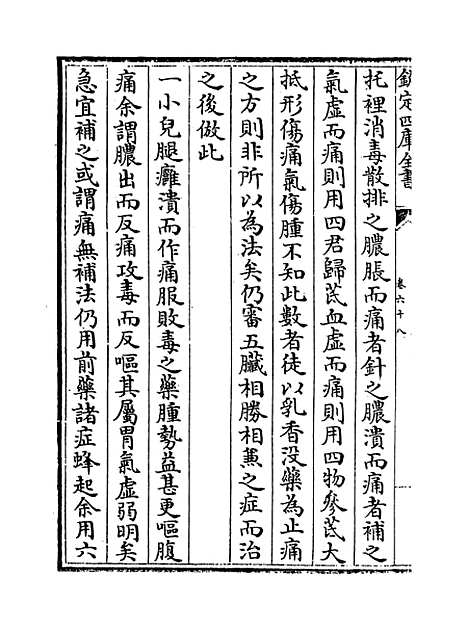 欽定四庫全書
卷六十八
托裡消毒散排之膿脹而痛者針之膿潰而痛者補之
氣虛而痛則用四君歸芪血虛而痛則用四物參芪大
抵形傷痛氣傷腫不知此數者徒以乳香没藥為止痛
之方則非所以為法矣仍審五臟相勝相兼之症而治
之後倣此
一小兒腿癰潰而作痛服敗毒之藥腫勢益甚更嘔腹
痛余謂膿出而反痛攻毒而反嘔其屬胃氣虛弱明矣
急宜補之或謂痛無補法仍用前藥諸症蜂起余用六